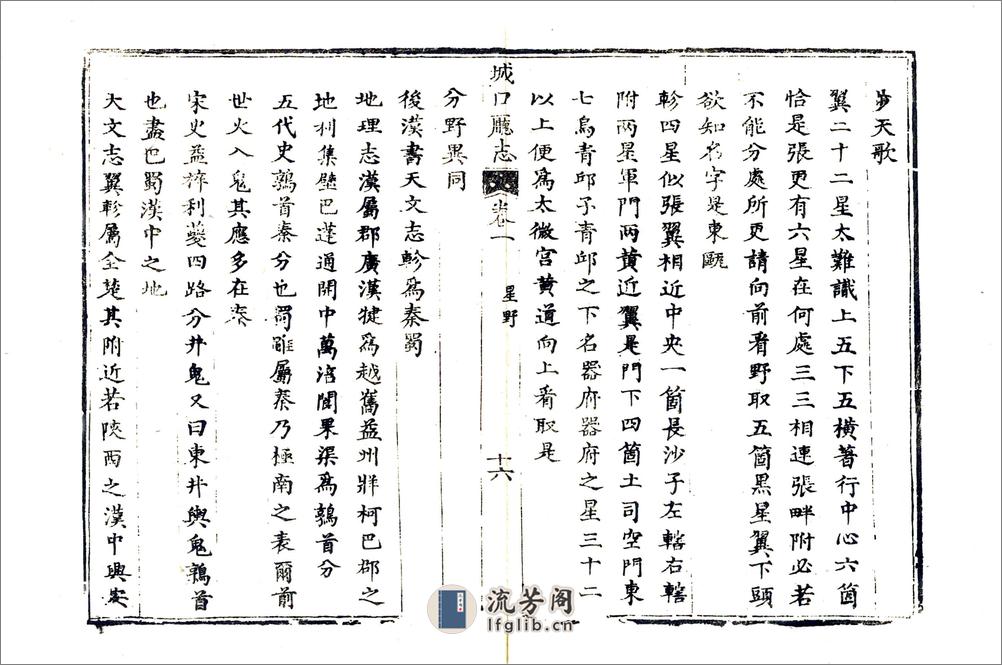 步天歌
翼二十二星太難識上五下五橫著行中心六箇
恰是張更有六星在何處三三相連張畔附必若
不能分處所更請向前看野取五箇黑星翼下頭
欲知名字是東甌
軫四星似張翼相近中央一箇長沙子左轄右轄
附兩星軍門兩黃近翼是門下四箇土司空門東
七烏青邱子青邱之下名器府器府之星三十二
以上便爲太微宮黃道向上看取是
城口廳志 卷一 星野 十六
分野異同
後漢書天文志軫爲秦蜀
地理志漢屬郡廣漢犍爲越嶲益州牂柯巴郡之
地利集壁巴蓬通開中萬涪閬果渠爲鶉首分
五代史鶉首秦分也蜀雖屬秦乃極南之表爾前
世火入鬼其應多在秦
宋史益梓利夔四路分井鬼又曰東井輿鬼鶉首
也盡巴蜀漢中之地
天文志翼軫屬全楚其附近若陝西之漢中興安
流芳阁
lfglib.cn